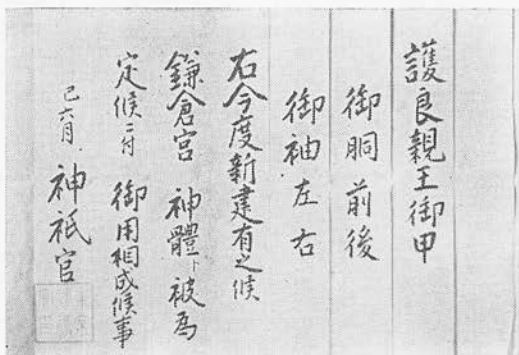 護良親王御甲
御胴前後
御袖左右
右今度新建有之候
鎌倉宮 神體ト被為
定候ニ付 御用相成候事
己六月 神祇官